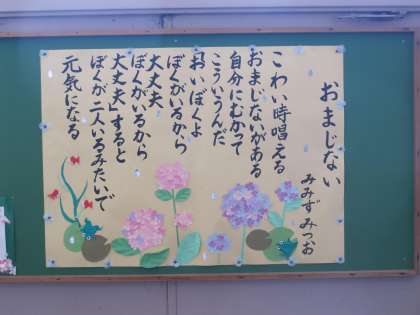 おまじない
みみずみつお
こわい時唱える
おまじないがある
自分にむかって
こういうんだ
「おいぼくよ
ぼくがいるから
大丈夫
ぼくがいるから
大丈夫」すると
ぼくが二人いるみたいで
元気になる